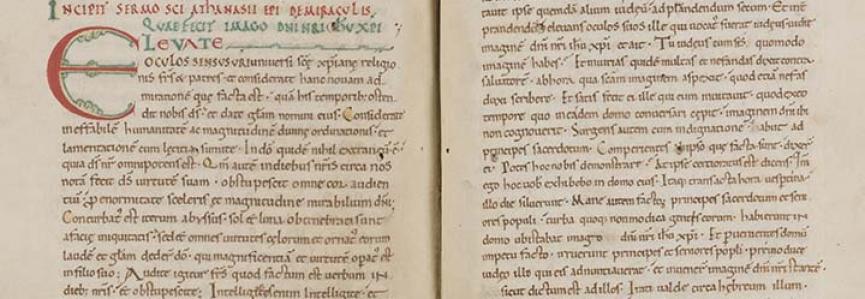 INCIPIT SERMO SCI ATHANASII EPI DE MIRACULIS
QUAE FECIT IMAGO DNI NRI IHU XPI
ELEVATE
OCULOS SENSUS VRI universi scę xpiane religio
nis frs & patres & considerate hanc novam ad
mirationē quę facta est quā his temporib; osten
dit nobis ds & date glam nomini eius. Considerate
ineffabilē humanitatē ac magnitudinē divinę ordinationis &
lamentationē cum leticia sumite. In dō quidē nihil extraneū ē
quia ds nr omnipotens est. Qm autē in diebus nris circa nos
nota fecit ds virtutē suam obstupescit omne cor audien
tiū p enormitate sceleris & magnitudine mirabiliū di;
Concurbat est iterum abyssus sol & luna obtenebrati sunt
a facie iniquitatis sed & omnes virtutes cęlorum & ornat eorum
laudē & glam dederunt dō qui magnificentiā & virtute opat est
in filio suo; Audite igitur frs quod factum est verbum in
dieb; nris & obstupescite; Intelligite &
tunc ipse quendā alium iudęū ad prandendum secum. Et int
prandendū elevans oculos suos ille qui vocat fuerat iudęus vidit
imaginē dni nri ihu xpi & ait. Tu iudęus cum sis quomodo
imaginē habes. Et iniurias quidē multas & nefandas dixit contra
salvatorē abhora quā scam imaginem aspexit quod etiā nefas
duxi scribere. Et satis fecit ei ille qui eum invitavit quod ex eo
tempore quo in eadem domo conversari cępit imaginem dni ihu
non cognoverit. Surgens autem cum indignatione abiit ad
principes sacerdotum. Comperientes ipso quę facta sunt dixer
ei. Potes hoc nobis demonstrare. At ipse certioratus est dicens. Im
ego hoc vob exhibebo in domo eius. Itaq; transacta hora vespertina
illo die siluerunt. Mane autem facto principes sacerdotum & seni
ores populi turba quoq; non modica gentis eorum habierunt in
domo ubi stabat imago dni nri ihu xpi. Et pervenientes domū
impetu facto irruerunt principes & seniores popli previo duce
iudęo illo qui eis adnuntiaverat & invener imaginē dni nri stantē
sicut dictum est ad illos. Irati valde circa hebreum illum